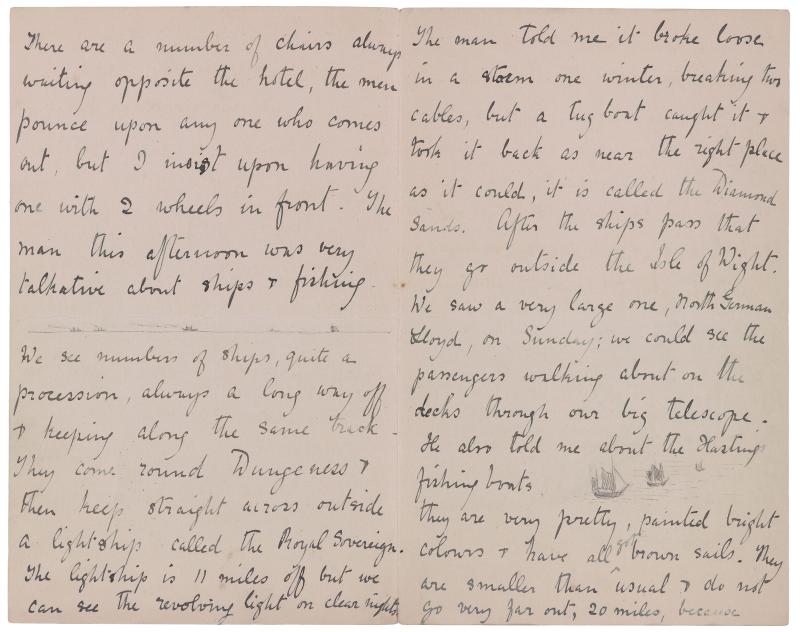 There are a number of chairs always
waiting opposite the hotel, the men
pounce upon any one who comes
out, but I insist upon having
one with 2 wheels in front. The
man this afternoon was very
talkative about ships & fishing.
We see numbers of ships, quite a
procession, always a long way off
& keeping along the same track.
They come round Dungeness &
then keep straight across outside
a lightship called the Royal Sovereign.
The lightship is 11 miles off but we
can see the revolving light on clear nights
The man told me it broke loose
in a storm one winter, breaking two
cables, but a tug boat caught it &
took it back as near the right place
as it could, it is called the Diamond
Sands. After the ships pass that
they go outside the Isle of Wight.
We saw a very large one, North German
Lloyd, on Sunday; we could see the
passengers walking about on the
decks through our big telescope.
He also told me about the Hastings
fishing boats
they are very pretty, painted bright
colours & have all brown sails. They
are smaller than usual & do not
go very far out, 20 miles, because